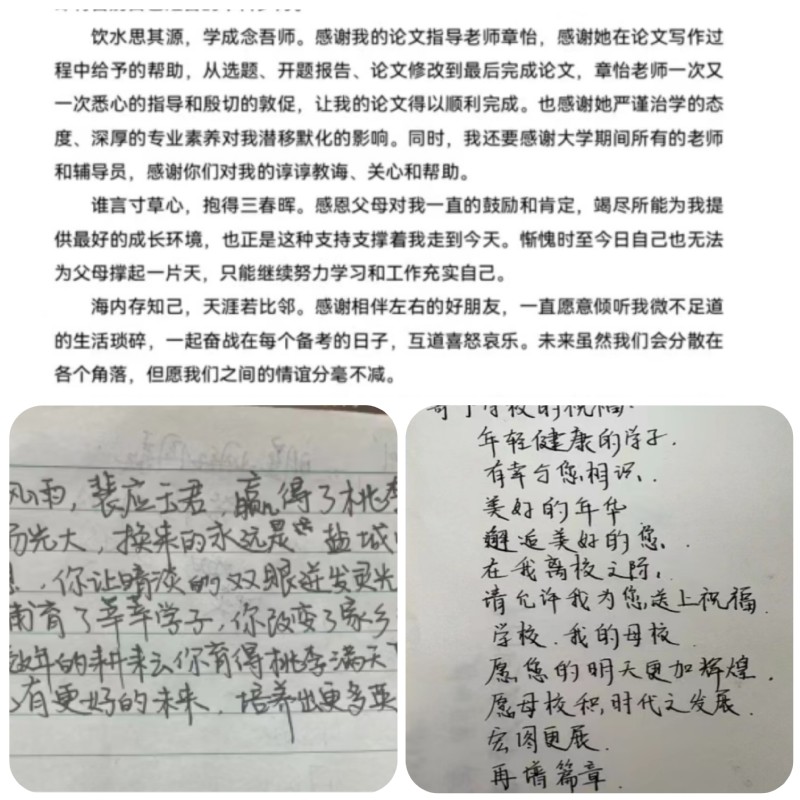 饮水思其源，学成念吾师。感谢我的论文指导老师章怡，感谢她在论文写作过
程中给予的帮助，从选题、开题报告、论文修改到最后完成论文，章怡老师一次又
一次悉心的指导和殷切的敦促，让我的论文得以顺利完成。也感谢她严谨治学的态
度、深厚的专业素养对我潜移默化的影响。同时，我还要感谢大学期间所有的老师
和辅导员，感谢你们对我的谆谆教诲、关心和帮助。
谁言寸草心，抱得三春晖。感恩父母对我一直的鼓励和肯定，竭尽所能为我提
供最好的成长环境，也正是这种支持支撑着我走到今天。惭愧时至今日自己也无法
为父母撑起一片天，只能继续努力学习和工作充实自己。
海内存知己，天涯若比邻。感谢相伴左右的好朋友，一直愿意倾听我微不足道
的生活琐碎，一起奋战在每个备考的日子，互道喜怒哀乐。未来虽然我们会分散在
各个角落，但愿我们之间的情谊分毫不减。
风雨，裴应玉君 赢得了桃李
光大，换来的永远是"盐城
，你让暗淡的双眼迸发灵光
育了莘莘学子，你改变了家乡
年的耕耘云你育得桃李满天下
有更好的未来，培养出更多英
学校的祝福.
年轻健康的学子.
有幸与您相识.
美好的年华
邂逅美好的您.
在我离校之际.
请允许我为您送上祝福.
学校.我的母校
愿您的明天更加辉煌.
愿母校积时代之发展.
宏图更展.
再增篇章.